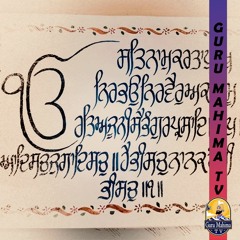 ੴ ਸਤਿਨਾਮੁਕਰਤਾਪੁ
ਨਿਰਭਉਨਿਰਵੈਰੁਅਕਾ
ਰਤਿਅਜੂਨੀਸੈਭੰਗੁਰਪ੍ਰਸਾਦਿ
ਆਦਿਸਚੁਜੁਗਾਦਿਸਚੁ॥ਹੈਭੀਸਚੁਨਾਨਕ
ਭੀਸਚੁ॥੧॥
GURU MAHIMA TV
Guru Mahima
TV